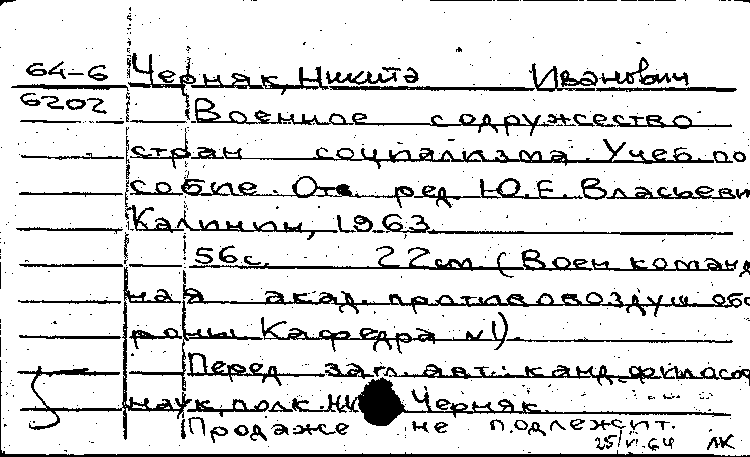 64-6 Черняк, Никита Иванович
6202 Военное содружество
стран социализма. Учеб. по
собие. Отв. ред. Ю.Е. Власьеви
Калинин, 1963
56с. 22см (Воен команд
ная акад. противовоздуш обо
роны Кафедра №1).
Перед загл. авт.: канд. философ
наук, полк. Черняк.
Продаже не подлежит.
25/VI.64 ЛК